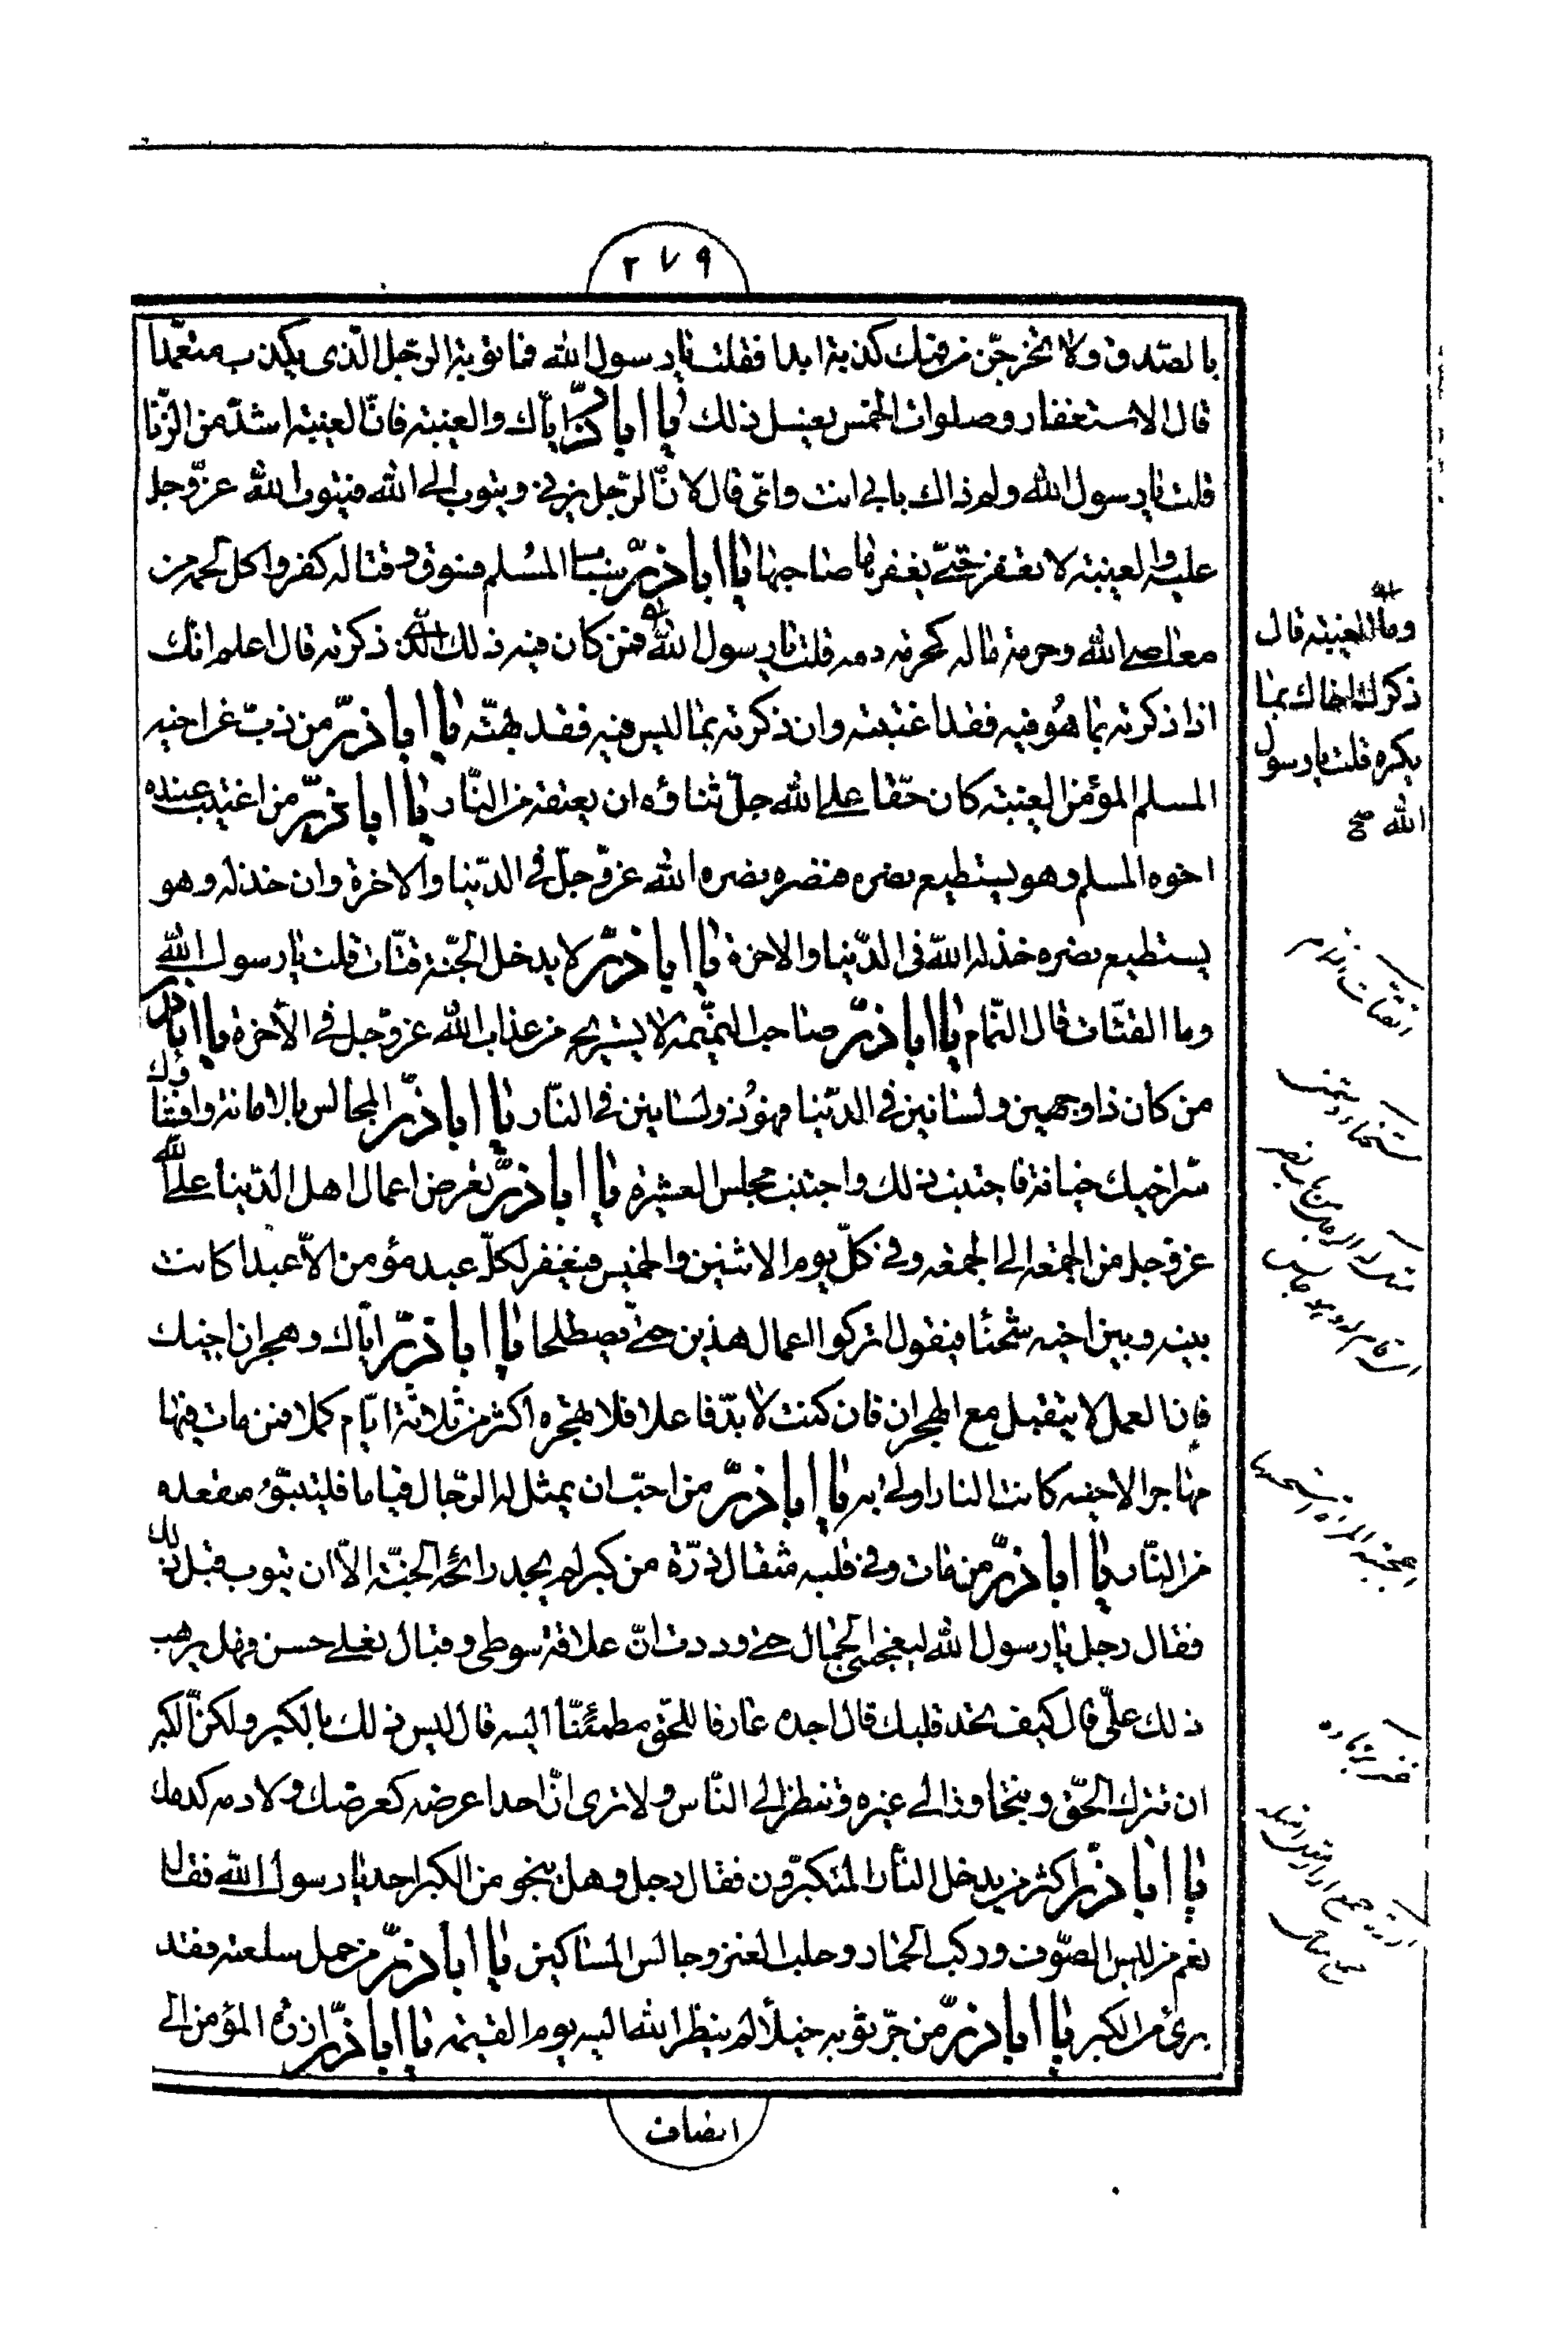 ٢٧٩
بالصّدق ولا تخرجنّ من فيك كذبة ابدا فقلت يا رسول الله فما توبة الرّجل الّذى يكذب متعمّدا
قال الاستغفار وصلوات الخمس يغسل ذلك يا ابا ذرّ ايّاك والغيبة فانّ الغيبة اشدّ من الزّنا
قلت يا رسول الله ولم ذاك بابى انت وامّى قال لانّ الرّجل يزنى ويتوب الى الله فيتوب الله عزّ وجل
عليه والغيبة لا تغفر حتّى يغفرها صاحبها يا ابا ذرّ سباب المسلم فسوق وقتاله كفر واكل لحمه من
معاصى الله وحرمة ماله كحرمة دمه قلت يا رسول الله فمن كان فيه ذلك الّذى ذكرته قال اعلم انّك
اذا ذكرته بما هو فيه فقد اغتبته وان ذكرته بما ليس فيه فقد بهتّه يا ابا ذرّ من ذبّ عن اخيه
المسلم المؤمن الغيبة كان حقّا على الله جلّ ثناؤه ان يعتقه من النّار يا ابا ذرّ من اغتيب عنده
اخوه المسلم وهو يستطيع نصره فنصره نصره الله عزّ وجلّ فى الدّنيا والاخرة وان خذله وهو
يستطيع نصره خذله الله فى الدّنيا والاخرة يا ابا ذرّ لا يدخل الجنّة قتّات قلت يا رسول الله
وما القتّات قال النّمام يا ابا ذرّ صاحب النّميمة لا يستريح من عذاب الله عزّ وجل فى الاخرة يا ابا ذر
من كان ذا وجهين ولسانين فى الدّنيا فهو ذو لسانين فى النّار يا ابا ذرّ المجالس بالامانة وافشاؤك
سرّ اخيك خيانة فاجتنب ذلك واجتنب مجلس العشيرة يا ابا ذرّ تعرض اعمال اهل الدّنيا على الله
عزّ وجل من الجمعه الى الجمعه وفى كلّ يوم الاثنين والخميس فيغفر لكلّ عبد مؤمن الّا عبدا كانت
بينه وبين اخيه شحنا فيقول اتركوا اعمال هذين حتّى يصطلحا يا ابا ذرّ ايّاك وهجران اخيك
فان العمل لا يتقبل مع الهجران فان كنت لا بدّ فاعلا فلا تهجره اكثر من ثلاثة ايّام كملا فمن مات فيها
مهاجرا لاخيه كانت النار اولى به يا ابا ذرّ من احبّ ان يمثل له الرّجال قياما فليتبوّء مقعده
من النّار يا ابا ذرّ من مات وفى قلبه مثقال ذرّة من كبر لم يجد رائحة الجنّة الّا ان يتوب قبل ذلك
فقال رجل يا رسول الله ليعجبنى الجمال حتى وددت انّ علاقة سوطى وقبال نعلى حسن فهل يرهب
ذلك علىّ قال كيف تجد قلبك قال اجده عارفا للحقّ مطمئنّا اليه قال ليس ذلك بالكبر ولكنّ الكبر
ان تترك الحقّ وتتجاوز الى غيره وتنظر الى النّاس ولا ترى انّ احدا عرضه كعرضك ولا دمه كدمك
يا ابا ذرّ اكثر من يدخل النّار المتكبّرون فقال رجل وهل ينجو من الكبر احد يا رسول الله فقال
نعم من لبس الصّوف وركب الحمار وحلب العنز وجالس المساكين يا ابا ذرّ من حمل سلعته فقد
برئ من الكبر يا ابا ذرّ من جرّ ثوبه خيلاء لم ينظر الله اليه يوم القيمة يا ابا ذرّ ازرة المؤمن الى
انصاف
وما الغيبة قال
ذكرك اخاك بما
يكره قلت يا رسول
الله صح